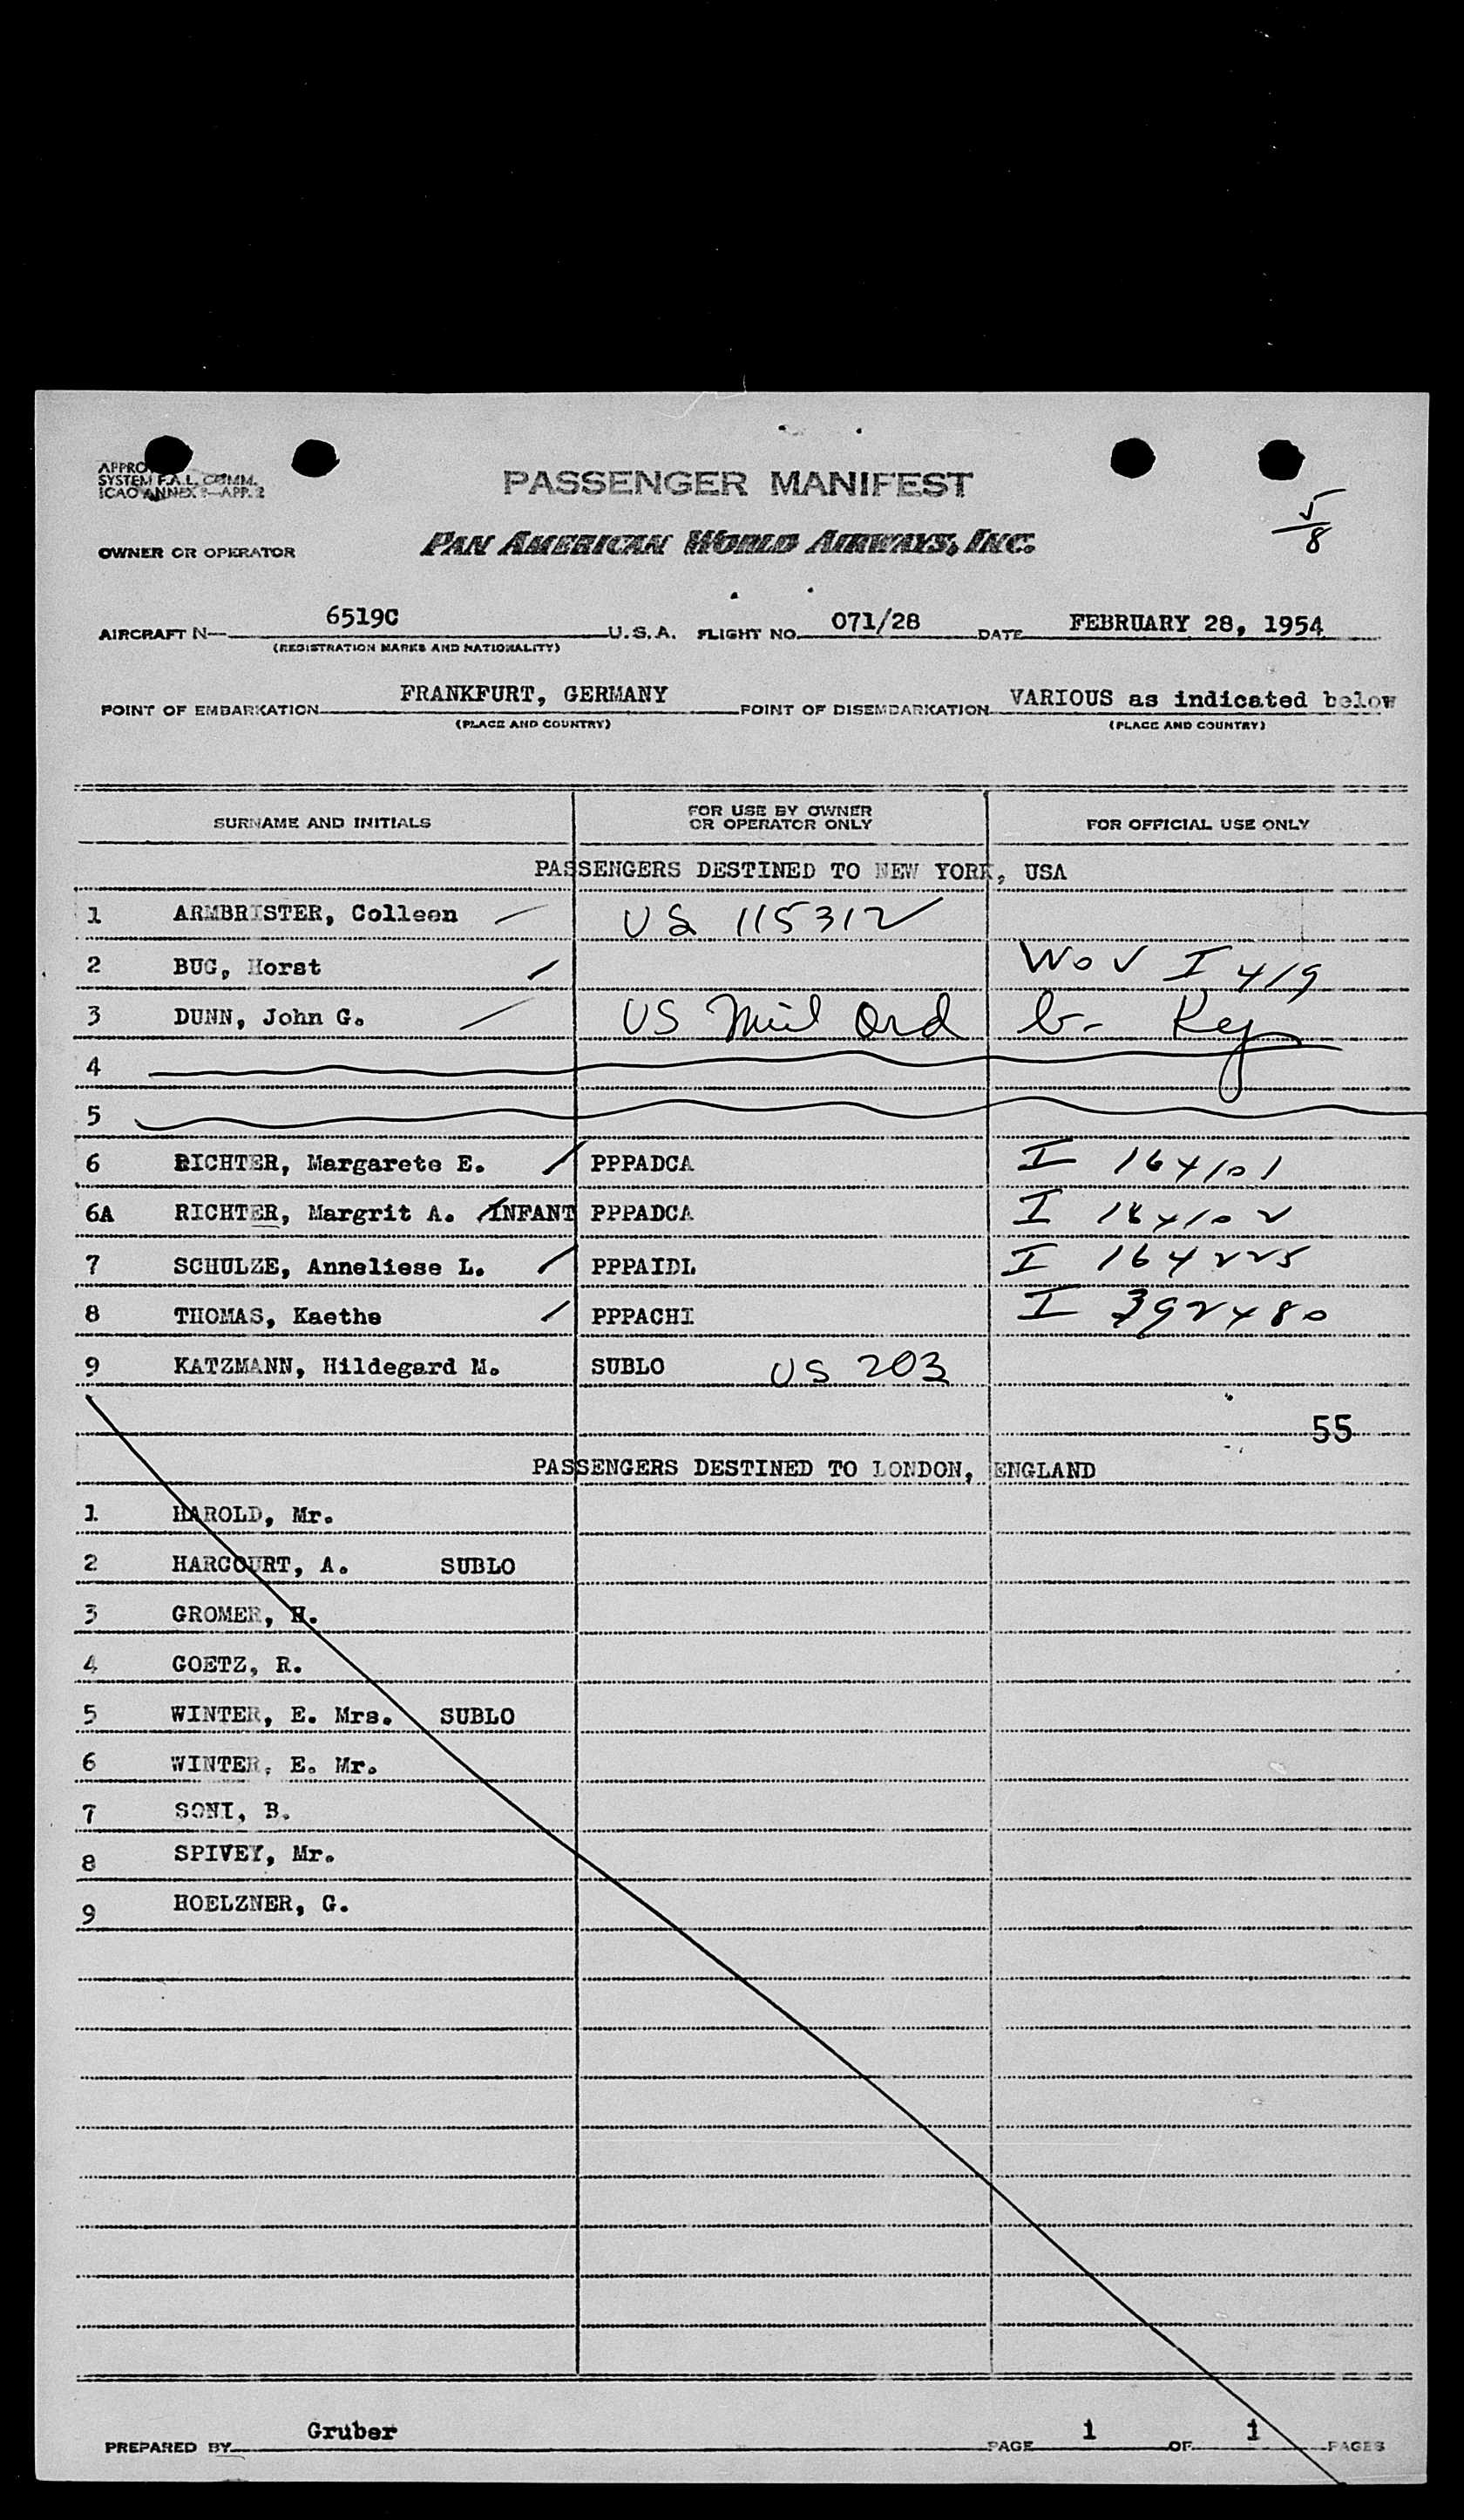 APPRO
SYSTEM F.A.L. COMM.
ICAO ANNEX 9—APP. 2
PASSENGER MANIFEST
5/8
OWNER OR OPERATOR PAN AMERICAN WORLD AIRWAYS, INC.
AIRCRAFT N— 6519C U.S.A. FLIGHT NO. 071/28 DATE FEBRUARY 28, 1954
(REGISTRATION MARKS AND NATIONALITY)
POINT OF EMBARKATION FRANKFURT, GERMANY POINT OF DISEMBARKATION VARIOUS as indicated below
(PLACE AND COUNTRY) (PLACE AND COUNTRY)
SURNAME AND INITIALS FOR USE BY OWNER OR OPERATOR ONLY FOR OFFICIAL USE ONLY
PASSENGERS DESTINED TO NEW YORK, USA
1 ARMBRISTER, Colleen US 115312
2 BUG, Horst WoV I 419
3 DUNN, John G. US Mil Ord
4
5
6 RICHTER, Margarete E. PPPADCA I 164101
6A RICHTER, Margrit A. INFANT PPPADCA I 164102
7 SCHULZE, Anneliese L. PPPAIDL I 164225
8 THOMAS, Kaethe PPPACHI I 392480
9 KATZMANN, Hildegard M. SUBLO US 203
55
PASSENGERS DESTINED TO LONDON, ENGLAND
1 HAROLD, Mr.
2 HARCOURT, A. SUBLO
3 GROMER, H.
4 GOETZ, R.
5 WINTER, E. Mrs. SUBLO
6 WINTER, E. Mr.
7 SONI, B.
8 SPIVEY, Mr.
9 HOELZNER, G.
PREPARED BY Gruber PAGE 1 OF 1 PAGES